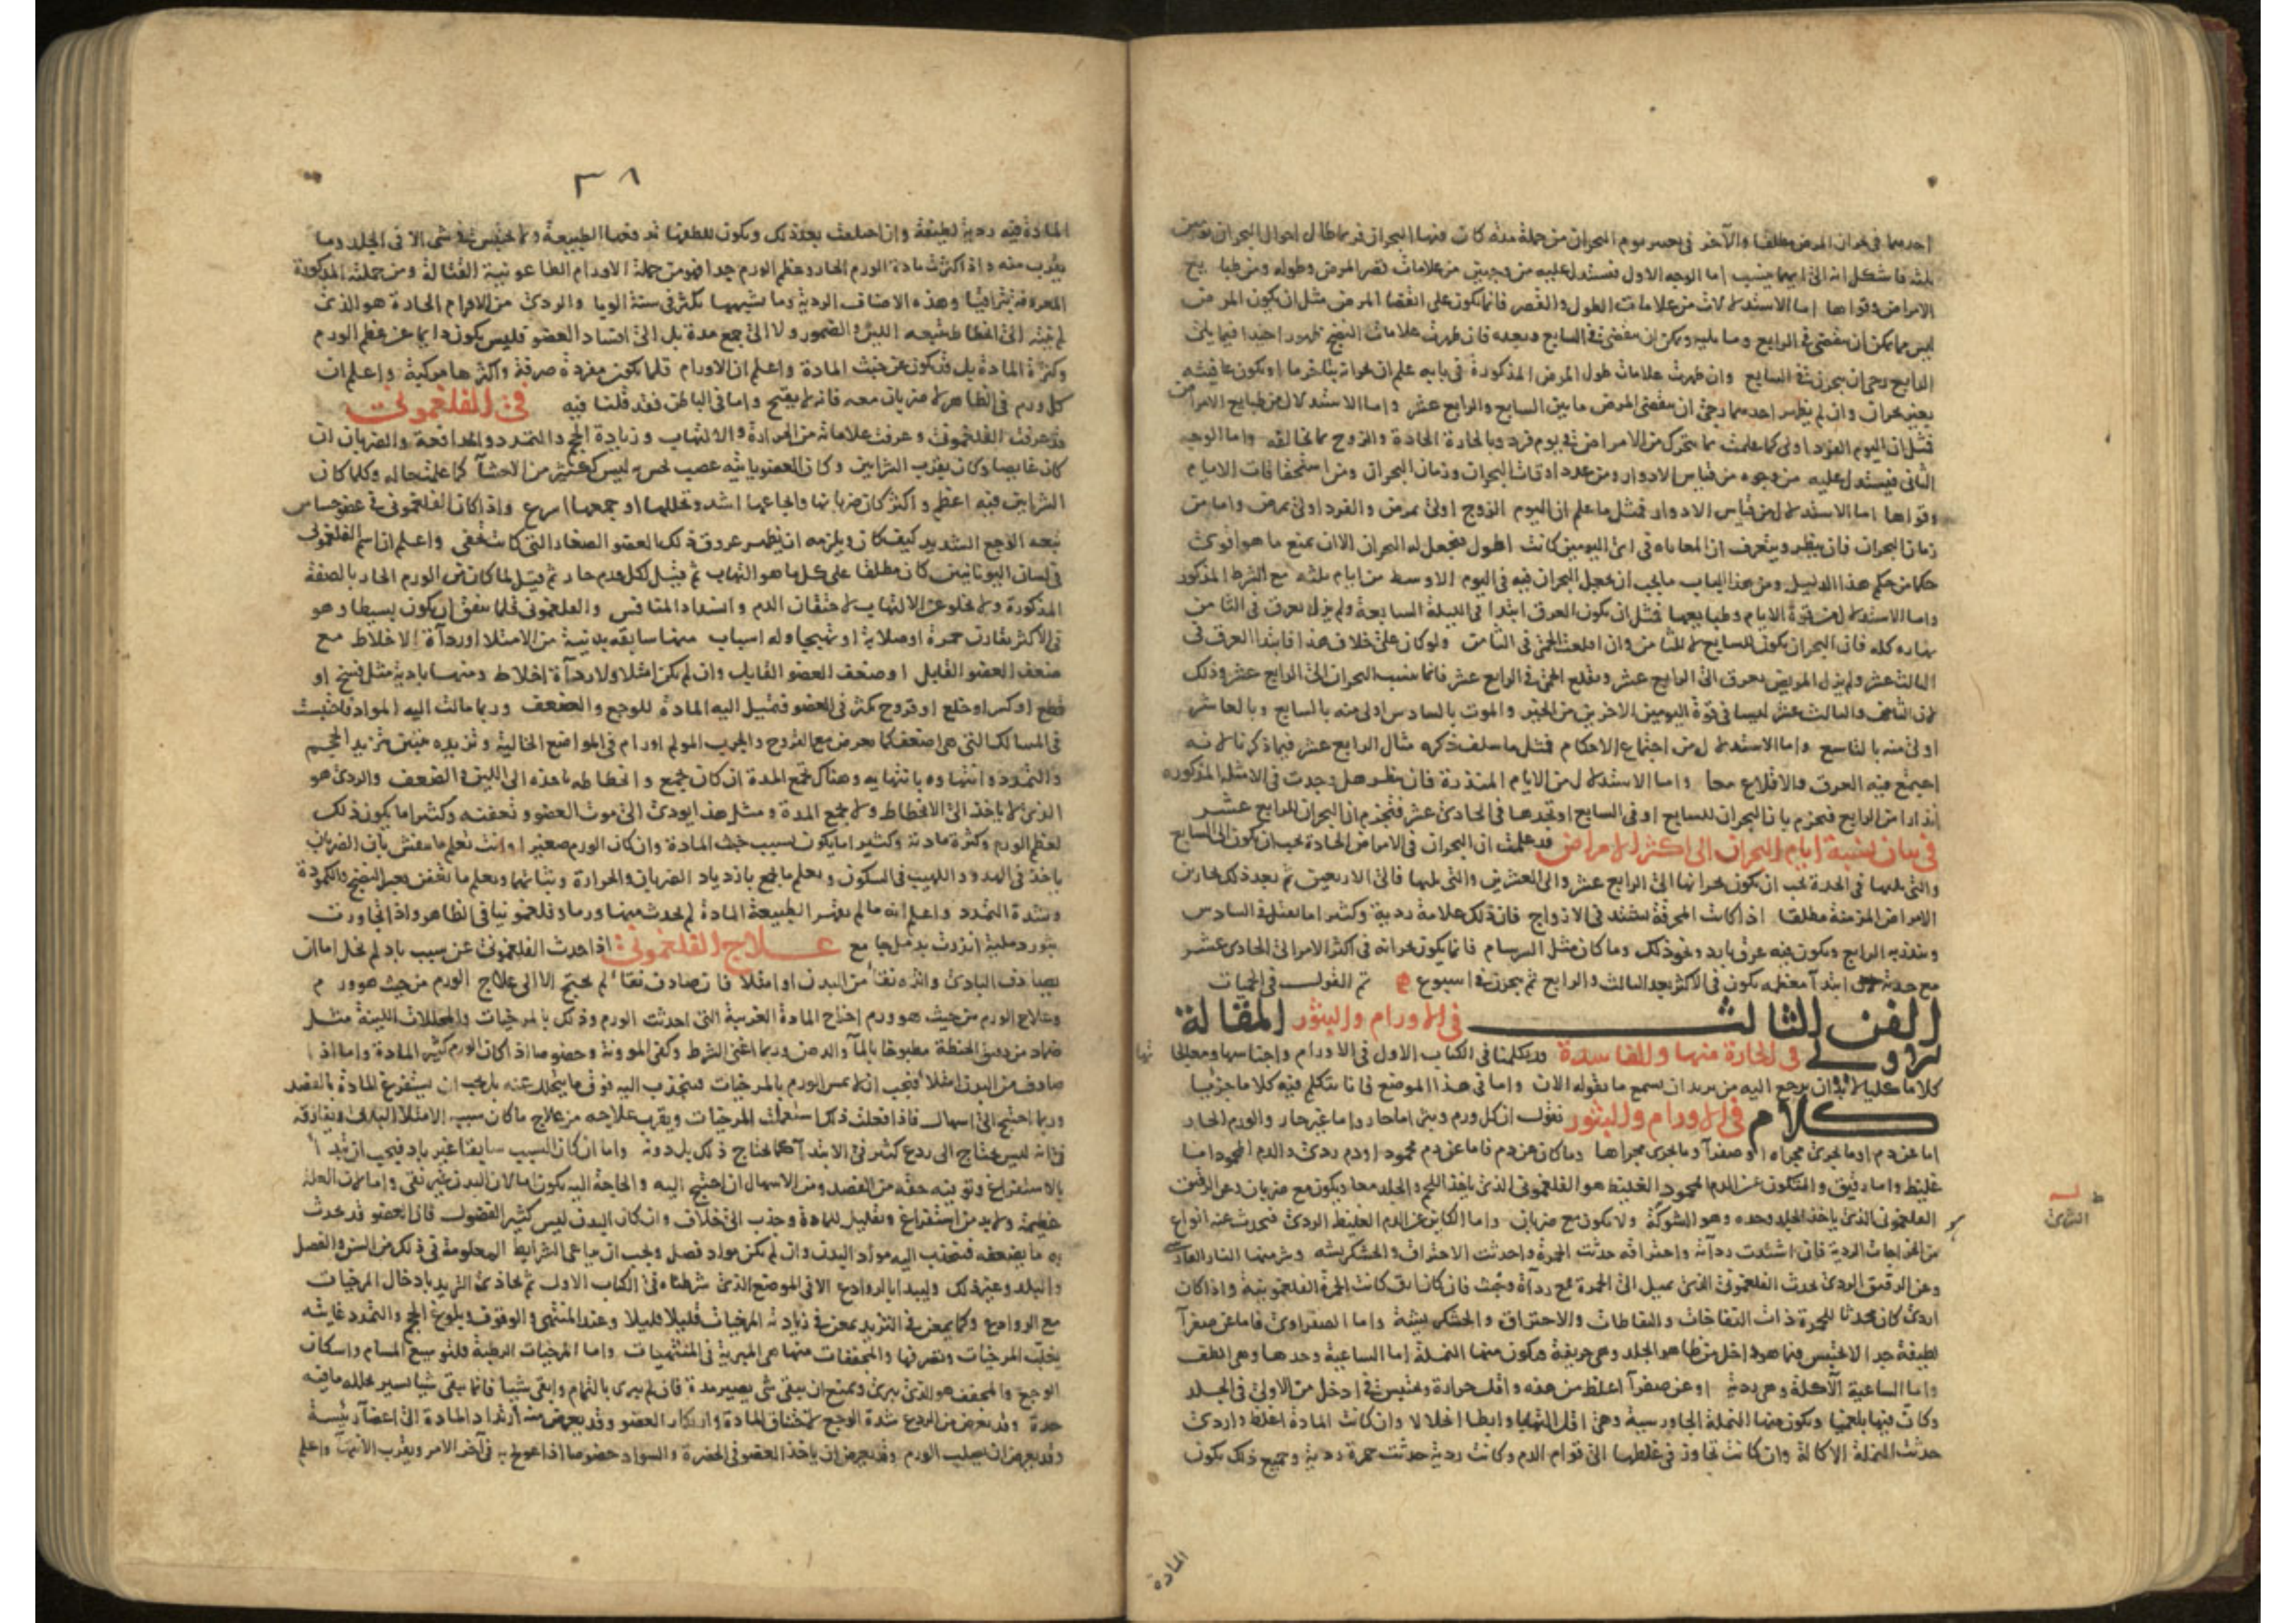 احدهما في بحران المرض مطلقا والآخر في يوم البحران من جملة مدة كان فيها البحران فربما طال احوال البحران يومين
ثلثة فاشكل انه الى ايهما ينسب اما الوجه الاول فيستدل عليه من وجهين من علامات قصر المرض وطوله ومن طبايع
الامراض وقواها اما الاستدلال من علامات الطول والقصر فانما يكون على انقضا المرض مثل ان يكون المرض
ليس مما يمكن ان ينقضى في الرابع وما يليه ويمكن ان ينقضى في السابع وبعده فان ظهرت علامات النضج ظهورا جيدا فيما يلى
الرابع رجى ان يبحرن في السابع وان ظهرت علامات طول المرض المذكورة في بابه علم ان بحرانه يتاخر ما او تكون عاقبته
بغير بحران وان لم يظهر احدهما رجى ان ينقضى المرض ما بين السابع والرابع عشر واما الاستدلال من طبايع الامراض
فمثل ان اليوم الفرد اولى كما علمت بما يتحرك من الامراض في يوم فرد وبالحارة الحادة والزوج بما يخالفه واما الوجه
الثانى فيستدل عليه من وجوه من قياس الادوار ومن عدد اوقات البحران وزمان البحران ومن استحقاقات الايام
وقواها اما الاستدلال من قياس الادوار فمثل ما علم ان اليوم الزوج اولى بمرض والفرد اولى بمرض واما من
زمان البحران فان ينظر ويتعرف ان المعاناه في اى اليومين كانت اطول فيجعل له البحران الا ان يمنع ما هو اقوى
حكما من حكم هذا الدليل ومن هذا الباب ما يجب ان يجعل البحران فيه في اليوم الاوسط من ايام ثلثه مع الشرط المذكور
واما الاستدلال من قوة الايام وطبايعها فمثل ان يكون العرق ابتدا في الليلة السابعة ولم يزل يعرق في الثامن
نهاره كله فان البحران يكون للسابع لا للثامن وان اقلعت الحمى في الثامن ولو كان على خلاف هذا فابتدا العرق في
الثالث عشر ولم يزل المريض يعرق الى الرابع عشر وتقلع الحمى في الرابع عشر فانما ينسب البحران الى الرابع عشر وذلك
لان الثامن والثالث عشر ليسا في قوة اليومين الاخرين من الخير والموت بالسادس اولى منه بالسابع وبالعاشر
اولى منه بالتاسع واما الاستدلال من اجتماع الاحكام فمثل ما سلف ذكره مثال الرابع عشر فيما ذكرنا لانه
اجتمع فيه العرق والاقلاع معا واما الاستدلال من الايام المنذرة فان ينظر هل وجدت في الامثلة المذكوره
انذارا من الرابع فتجزم بان البحران للسابع او في السابع او تجدها في الحادى عشر فتجزم ان البحران للرابع عشر
في بيان نسبة ايام البحران الى اكثر الامراض قد علمت ان البحران في الامراض الحادة يجب ان يكون الى السابع
والتى يليها في الحدة يجب ان يكون بحرانها الى الرابع عشر والى العشرين والتى يليها فالى الاربعين ثم بعد ذلك بحارين
الامراض المزمنة مطلقا اذا كانت المحرقة يشتد في الازواج فان ذلك علامة ردية وكثيرا ما يقتل في السادس
وينذر به الرابع ويكون فيه عرق بارد ونحو ذلك وما كان مثل السرسام فانما يكون بحرانه في اكثر الامر الى الحادى عشر
مع حدته ابتدآ معظمه يكون في الاكثر بعد الثالث والرابع ثم يبحرن في اسبوع تم القول في الحميات
الفن الثالث في الاورام والبثور المقالة
الاولى في الحارة منها والفاسدة قد تكلمنا في الكتاب الاول في الاورام واجناسها ومعالجاتها
كلاما كليا لابد ان يرجع اليه من يريد ان يسمع ما نقوله الان واما في هذا الموضع فانا نتكلم فيه كلاما جزئيا
كلام في الاورام والبثور نقول ان كل ورم وبثر اما حار واما غير حار والورم الحار
اما عن دم او ما يجرى مجراه او صفرآ وما يجرى مجراها وما كان عن دم فاما عن دم محمود او دم ردى والدم المحمود اما
غليظ واما رقيق والمتكون عن الدم المحمود الغليظ هو الفلغمونى الذى ياخذ اللحم والجلد معا ويكون مع ضربان وعن الرقيق
الفلغمونى الذى ياخذ الجلد وحده وهو الشوكة ولا يكون مع ضربان واما الكاين عن الدم الغليظ الردى فيحدث عنه انواع
من الخراجات الردية فان اشتدت ردآته واحتراقه حدثت الجمرة واحدثت الاحتراق والخشكريشه وشر منها النار الفارسى
وعن الرقيق الردى يحدث الفلغمونى الذى يميل الى الحمرة مع ردآة وخبث فان كان ارق كانت الحمرة الفلغمونية واذا كان
اردى كان محدثا للحمرة ذات النفاخات والنفاطات والاحتراق والخشكريشة واما الصفراوى فاما عن صفرآ
لطيفة جدا لا تحتبس فيما هو داخل من ظاهر الجلد وهى حريفة فتكون منها النملة اما الساعية وحدها وهى الطف
واما الساعية الآكلة وهى ردية او عن صفرآ اغلظ من هذه واقل حرارة وتحتبس في داخل من الاولى في الجلد
وكان فيها بلغمية وتكون منها النملة الجاورسية وهى اقل التهابا وابطا انحلالا وان كانت المادة اغلظ واردى
حدثت النملة الاكالة وان كانت تجاوز في غلظها الى قوام الدم وكانت ردية حدثت حمرة ردية وجميع ذلك يكون
المادة
ط
الشرى
٣٨
المادة فيه ردية لطيفة وان اختلفت بعد ذلك ويكون للطفها قد دفعها الطبيعة ولا تحتبس في شى الا في الجلد وما
يقرب منه واذا كثرت مادة الورم الحار وعظم الورم جدا فهو من جملة الاورام الطاعونية القتالة ومن جملته المذكورة
المعروفة بتراقيا وهذه الاصناف الردية وما يشبهها يكثر في سنة الوبا والردى من الاورام الحادة هو الذى
لم ينته الى انحطاط يتبعه اللين والضمور ولا الى جمع مدة بل الى افساد العضو فليس يكون دايما عن عظم الورم
وكثرة المادة بل قد يكون عن خبث المادة واعلم ان الاورام قلما تكون مفردة صرفة واكثرها مركبة واعلم ان
كل ورم في الظاهر لا ضربان معه فانه لا يقيح واما في الباطن فقد قلنا فيه في الفلغمونى
قد عرفت الفلغمونى وعرفت علاماته من الحرارة والالتهاب وزيادة الحجم والتمدد والمدافعة والضربان ان
كان غايصا وكان بقرب الشرايين وكان العضو ياتيه عصب يحس به ليس ككثير من الاحشآ كما علمت حاله وكلما كان
الشرايين فيه اعظم واكثر كان ضربانها وايجاعها اشد وتحللها او جمعها اسرع واذا كان الفلغمونى في عضو حساس
تبعه الوجع الشديد كيف كان ويلزمه ان يظهر عروق ذلك العضو الصغار التى كانت تخفى واعلم ان اسم الفلغمونى
في لسان اليونانيين كان مطلقا على كل ما هو التهاب ثم قيل لكل ورم حار ثم قيل لما كان من الورم الحار بالصفة
المذكورة ولا يخلو عن الالتهاب لاحتقان الدم وانسداد المنافس والفلغمونى قلما يتفق ان يكون بسيطا وهو
في الاكثر يقارن حمرة او صلابة او تهيجا وله اسباب منها سابقه بدنية من الامتلا او ردآة الاخلاط مع
ضعف العضو القابل او ضعف العضو القابل وان لم يكن امتلا ولا ردآة اخلاط ومنها بادية مثل فسخ او
قطع او كسر او خلع او قروح يكثر في العضو فتميل اليه المادة للوجع والضعف وربما مالت اليه المواد فاحتبست
في المسالك التى هى اضعف كما يعرض مع القروح والجرب المولم اورام في المواضع الخالية وتزيده يتبين بتزيد الحجم
والتمدد وانتهاوه بانتهايه وهناك يجمع المدة ان كان يجمع وانحطاطه باخذه الى اللين والضعف والردى هو
الذى لا ياخذ الى الانحطاط ولا يجمع المدة ومثل هذا يودى الى موت العضو وتعفنه وكثيرا ما يكون ذلك
لعظم الورم وكثرة مادته وكثيرا ما يكون بسبب خبث المادة وان كان الورم صغيرا وانت تعلم ما ينفش بان الضربان
ياخذ في الهدو واللهيب في السكون وتعلم ما يجمع بازدياد الضربان والحرارة وثباتهما وتعلم ما تعفن بعسر النضج والكمودة
وشدة التمدد واعلم انه ما لم يقهر الطبيعة المادة لم يحدث منها ورما وفلغمونيا في الظاهر واذا تجاورت
بثور دملية انذرت بدمل جامع علاج الفلغمونى اذا حدث الفلغمونى عن سبب باد لم يخل اما ان
يصادف البادى والذه نقآ من البدن او امتلا فان صادف نقآ لم يحتج الا الى علاج الورم من حيث هو ورم
وعلاج الورم من حيث هو ورم اخراج المادة الغريبة التى احدثت الورم وذلك بالمرخيات والمحللات اللينة مثل
ضماد من دقيق الحنطة مطبوخا بالمآ والدهن وربما اغنى الشرط وكفى المونة وخصوصا اذا كان الورم كثير المادة واما اذا
صادف من البدن امتلآ فيجب ان لا يمس الورم بالمرخيات فينجذب اليه فوق ما يتحلل عنه بل يجب ان يستفرغ المادة بالفصد
وربما احتيج الى اسهال فاذا فعلت ذلك استعملت المرخيات ويقرب علاجه من علاج ما كان سببه الامتلا البدنى ويفارقه
في انه ليس يحتاج الى ردع كثير في الابتدآ كما يحتاج ذلك بل دونه واما ان كان السبب سابقا غير باد فيجب ان يبدا
بالاستفراغ وتوفيته حقه من الفصد ومن الاسهال ان احتيج اليه والحاجة اليه تكون اما لان البدن غير نقى واما لان العلة
عظيمة ولابد من استفراغ وتقليل للمادة وجذب الى خلاف وان كان البدن ليس كثير الفضول فان العضو قد يحدث
به ما يضعفه فتنجذب اليه مواد البدن وان لم يكن مواد فضل ويجب ان يراعى الشرايط المعلومة في ذلك من السن والفصل
والبلد وغير ذلك وليبدا بالروادع الا في الموضع الذى شرطناه في الكتاب الاول ثم يحاذى التزيد بادخال المرخيات
مع الروادع وكلما يمعن في التزيد يمعن في زيادة المرخيات قليلا قليلا وعند المنتهى والوقوف وبلوغ الحجم والتمدد غايته
يغلب المرخيات وتصرفها والمجففات منها هى المبرية في المنتهيات واما المرخيات الرطبة فلتوسيع المسام واسكان
الوجع والمجفف هو الذى يبرى ويمنع ان يبقى شى يصير مدة فان لم يبرى بالتمام وابقى شيئا فانما يبقى شيا يسيرا يحلله ما فيه
حدة وقد يعرض من الردع شدة الوجع لاختناق المادة وارتكاز العضو وقد يعرض منه ارتداد المادة الى اعضآ رئيسة
وقد يعرض ان يصلب الورم وقد يعرض ان ياخذ العضو في الخضرة والسواد خصوصا اذا عولج به في آخر الامر وبقرب الانتهآ واعلم